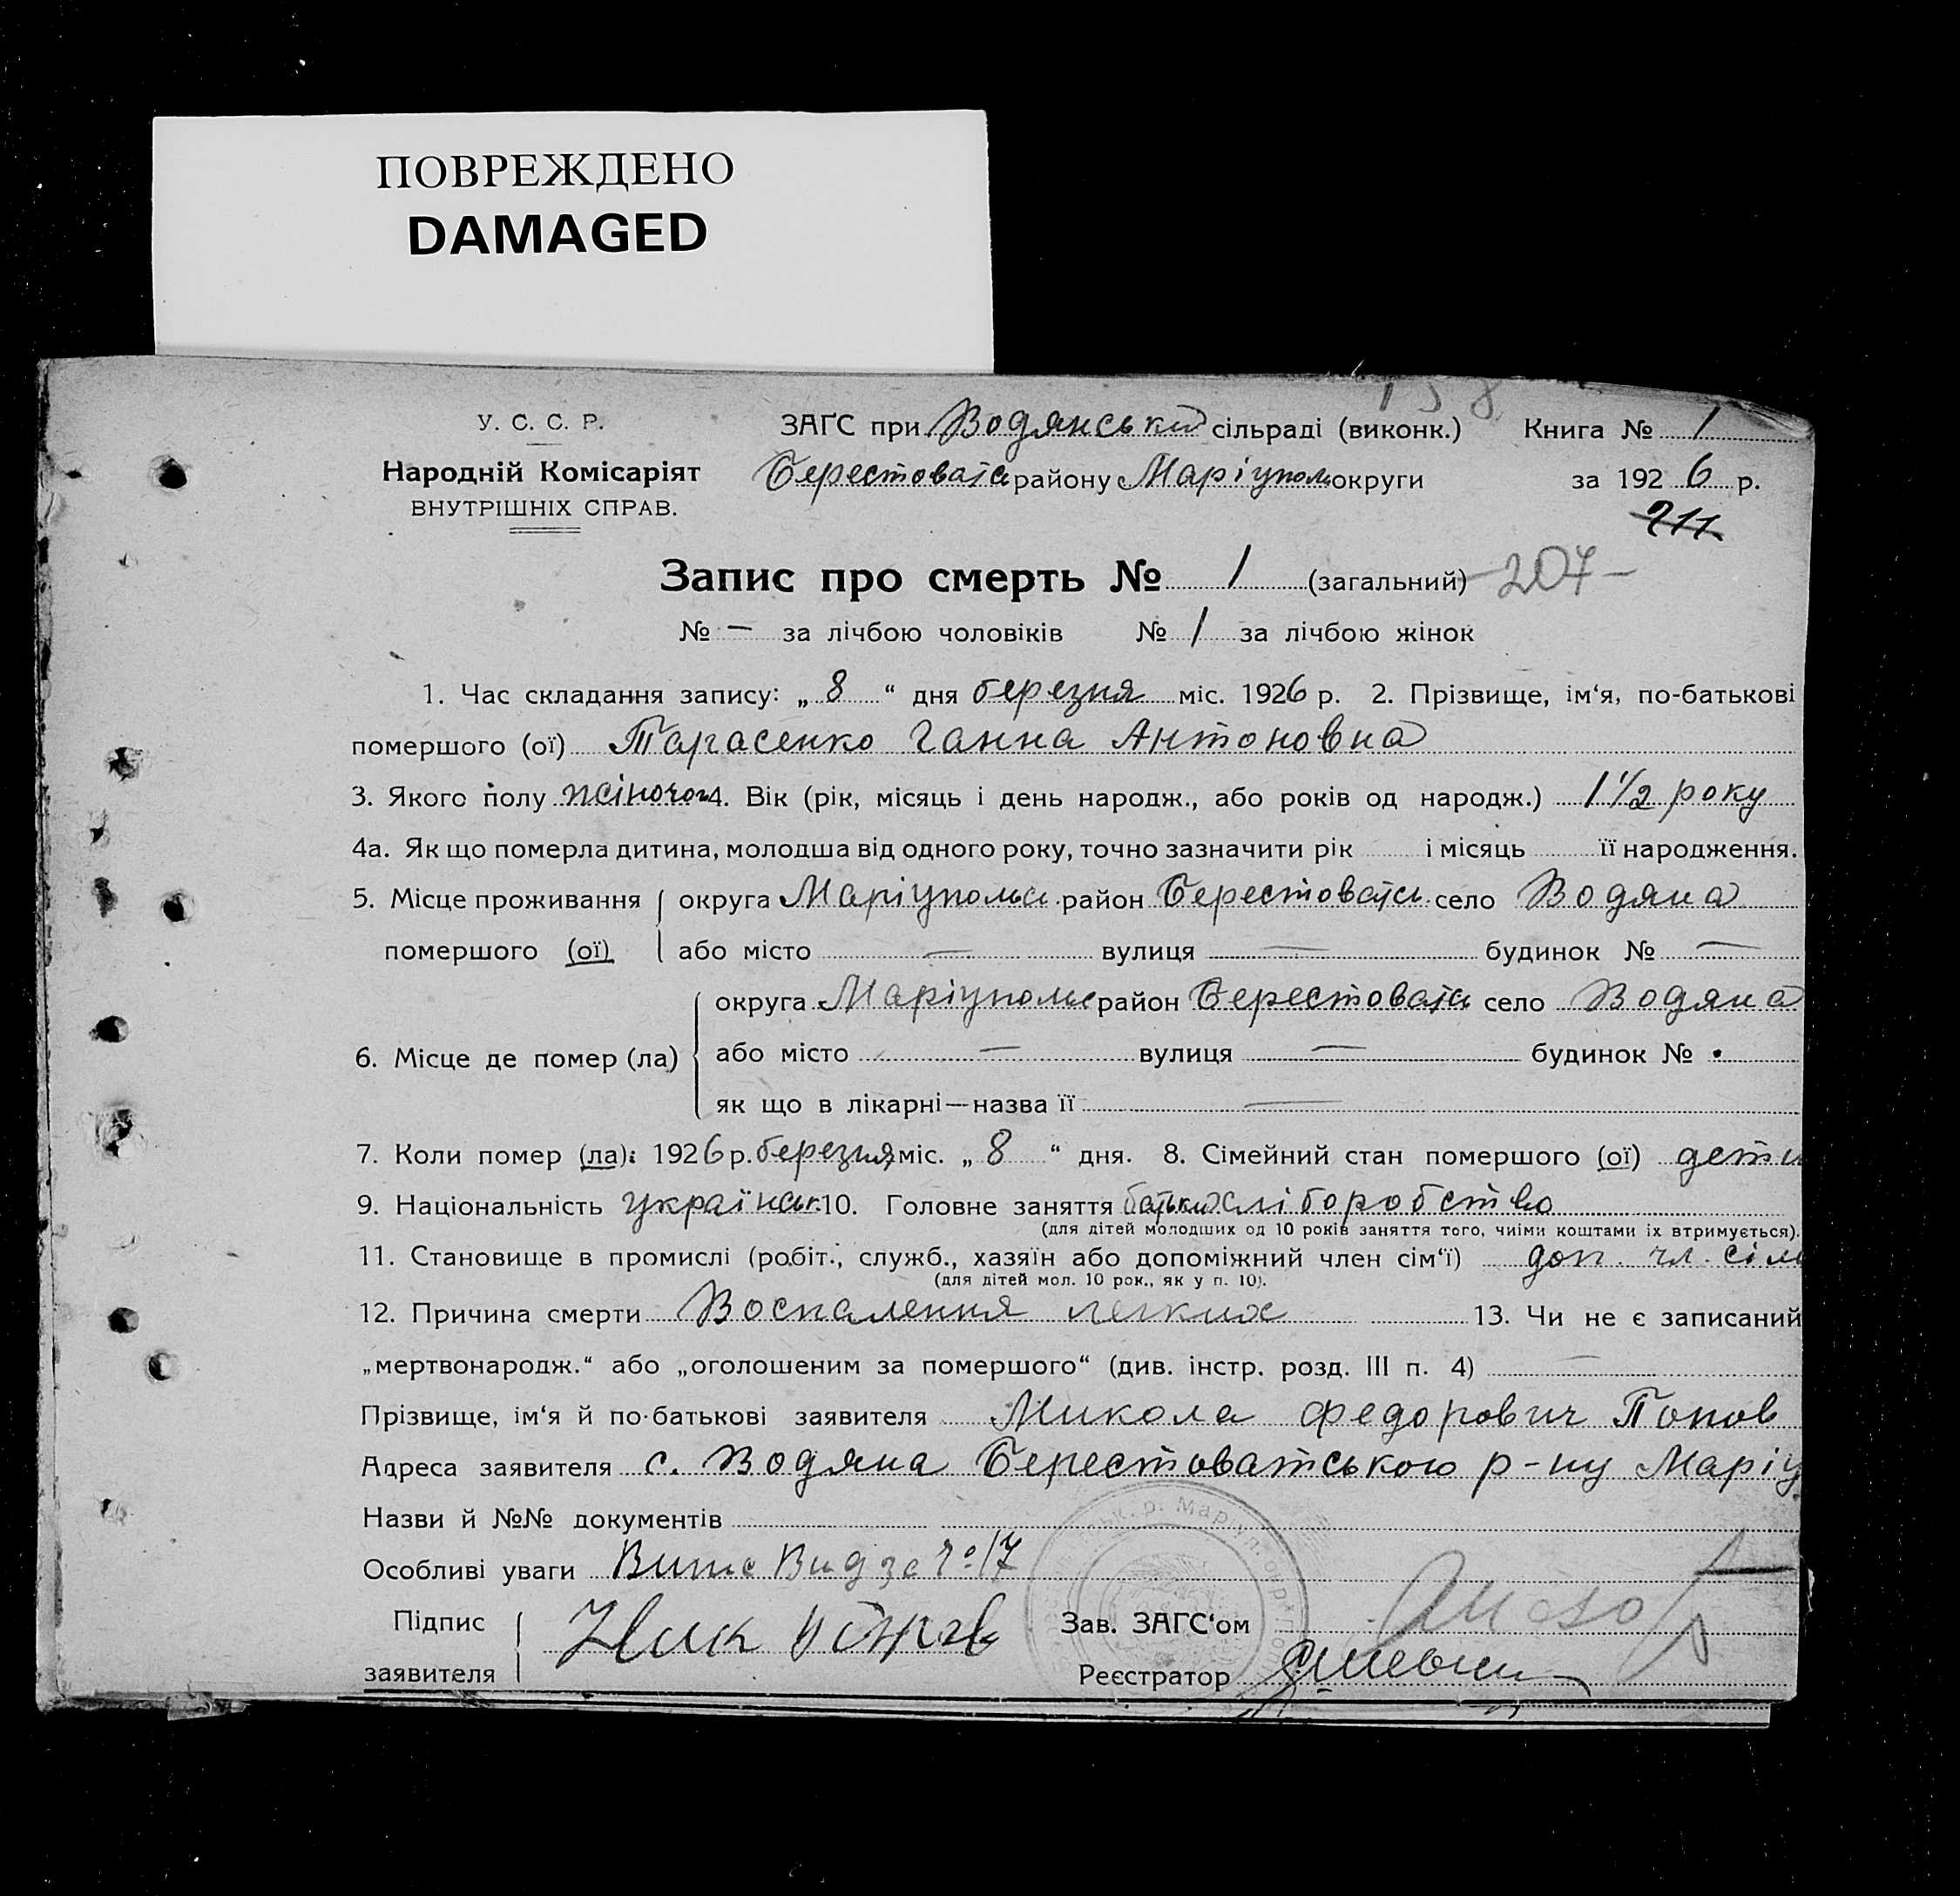 ПОВРЕЖДЕНО
DAMAGED
У. С. С. Р.
Народній Комісаріят
ВНУТРІШНІХ СПРАВ.
ЗАГС при Водянський сільраді (виконк.) Книга № 1
Берестоватсь району Маріупол округи за 1926 р.
211
Запис про смерть № 1 (загальний) -207-
№ — за лічбою чоловіків № 1 за лічбою жінок
1. Час складання запису: „ 8 “ дня березня міс. 1926 р. 2. Прізвище, ім‘я, по-батькові
помершого (ої) Тарасенко Ганна Антоновна
3. Якого полу жіночог 4. Вік (рік, місяць і день народж., або років од народж.) 1 1/2 року
4а. Як що померла дитина, молодша від одного року, точно зазначити рік і місяць її народження.
5. Місце проживання округа Маріупольс район Берестоватсь село Водяна
помершого (ої) або місто — вулиця — будинок № —
округа Маріупольс район Берестоватсь село Водяна
6. Місце де помер (ла) або місто — вулиця — будинок №
як що в лікарні—назва її —
7. Коли помер (ла): 1926 р. березня міс. „ 8 “ дня. 8. Сімейний стан помершого (ої) дети
9. Національність українськ. 10. Головне заняття батьки хліборобство
(для дітей молодших од 10 років заняття того, чиїми коштами їх втримується).
11. Становище в промислі (робіт., служб., хазяїн або допоміжний член сім‘ї) доп. чл. сім
(для дітей мол. 10 рок., як у п. 10).
12. Причина смерти Воспалення легких 13. Чи не є записаний
„мертвонародж.“ або „оголошеним за помершого“ (див. інстр. розд. III п. 4) —
Прізвище, ім‘я й по-батькові заявителя Микола Федорович Попов
Адреса заявителя с. Водяна Берестоватського р-ну Маріу
Назви й №№ документів
Особливі уваги 17
Підпис
заявителя
Зав. ЗАГС‘ом
Реєстратор